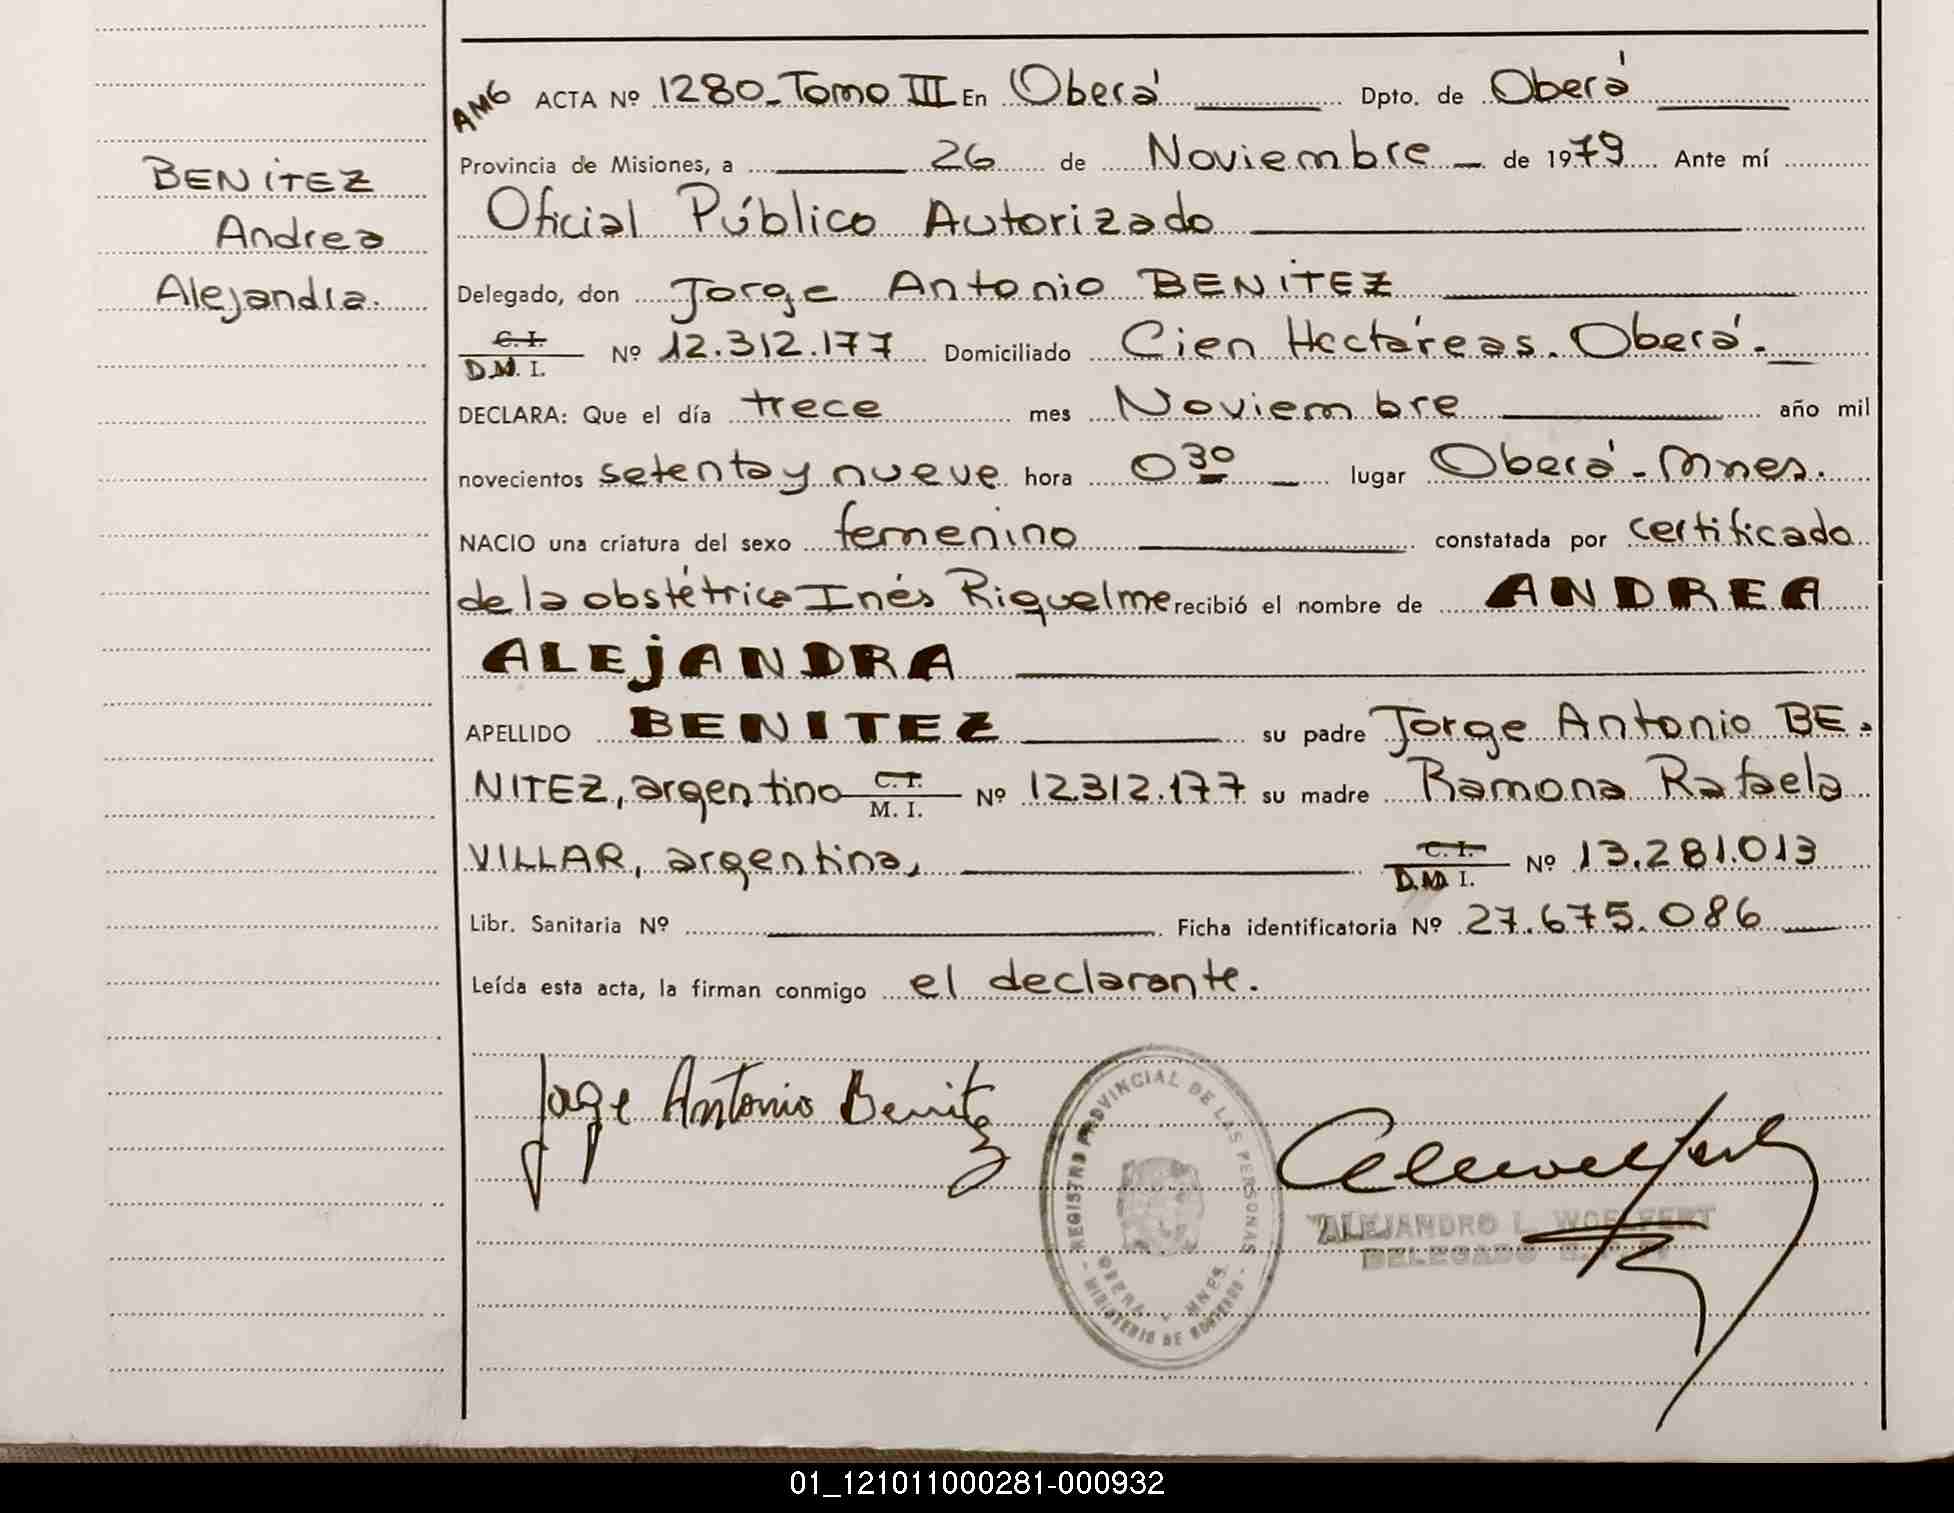 AMG ACTA Nº 1280_Tomo III En Oberá Dpto. de Oberá
Provincia de Misiones, a 26 de Noviembre de 1979 Ante mí
Oficial Público Autorizado
Delegado, don Jorge Antonio BENITEZ
C. I.
D.M. I. Nº 12.312.177 Domiciliado Cien Hectáreas. Oberá.
DECLARA: Que el día trece mes Noviembre año mil
novecientos setenta y nueve hora 0 30 lugar Oberá - Mnes.
NACIO una criatura del sexo femenino constatada por certificado
de la obstétrica Inés Riquelme recibió el nombre de ANDREA
ALEJANDRA
APELLIDO BENITEZ su padre Jorge Antonio BE-
NITEZ, argentino C. I. / M. I. Nº 12.312.177 su madre Ramona Rafaela
VILLAR, argentina, C. I. / D.M. I. Nº 13.281.013
Libr. Sanitaria Nº Ficha identificatoria Nº 27.675.086
Leída esta acta, la firman conmigo el declarante.
BENITEZ
Andrea
Alejandra.
Jorge Antonio Benitez
REGISTRO PROVINCIAL DE LAS PERSONAS
OBERA - MNES.
- MINISTERIO DE GOBIERNO -
ALEJANDRO L. WOELFERT
DELEGADO
01_121011000281-000932